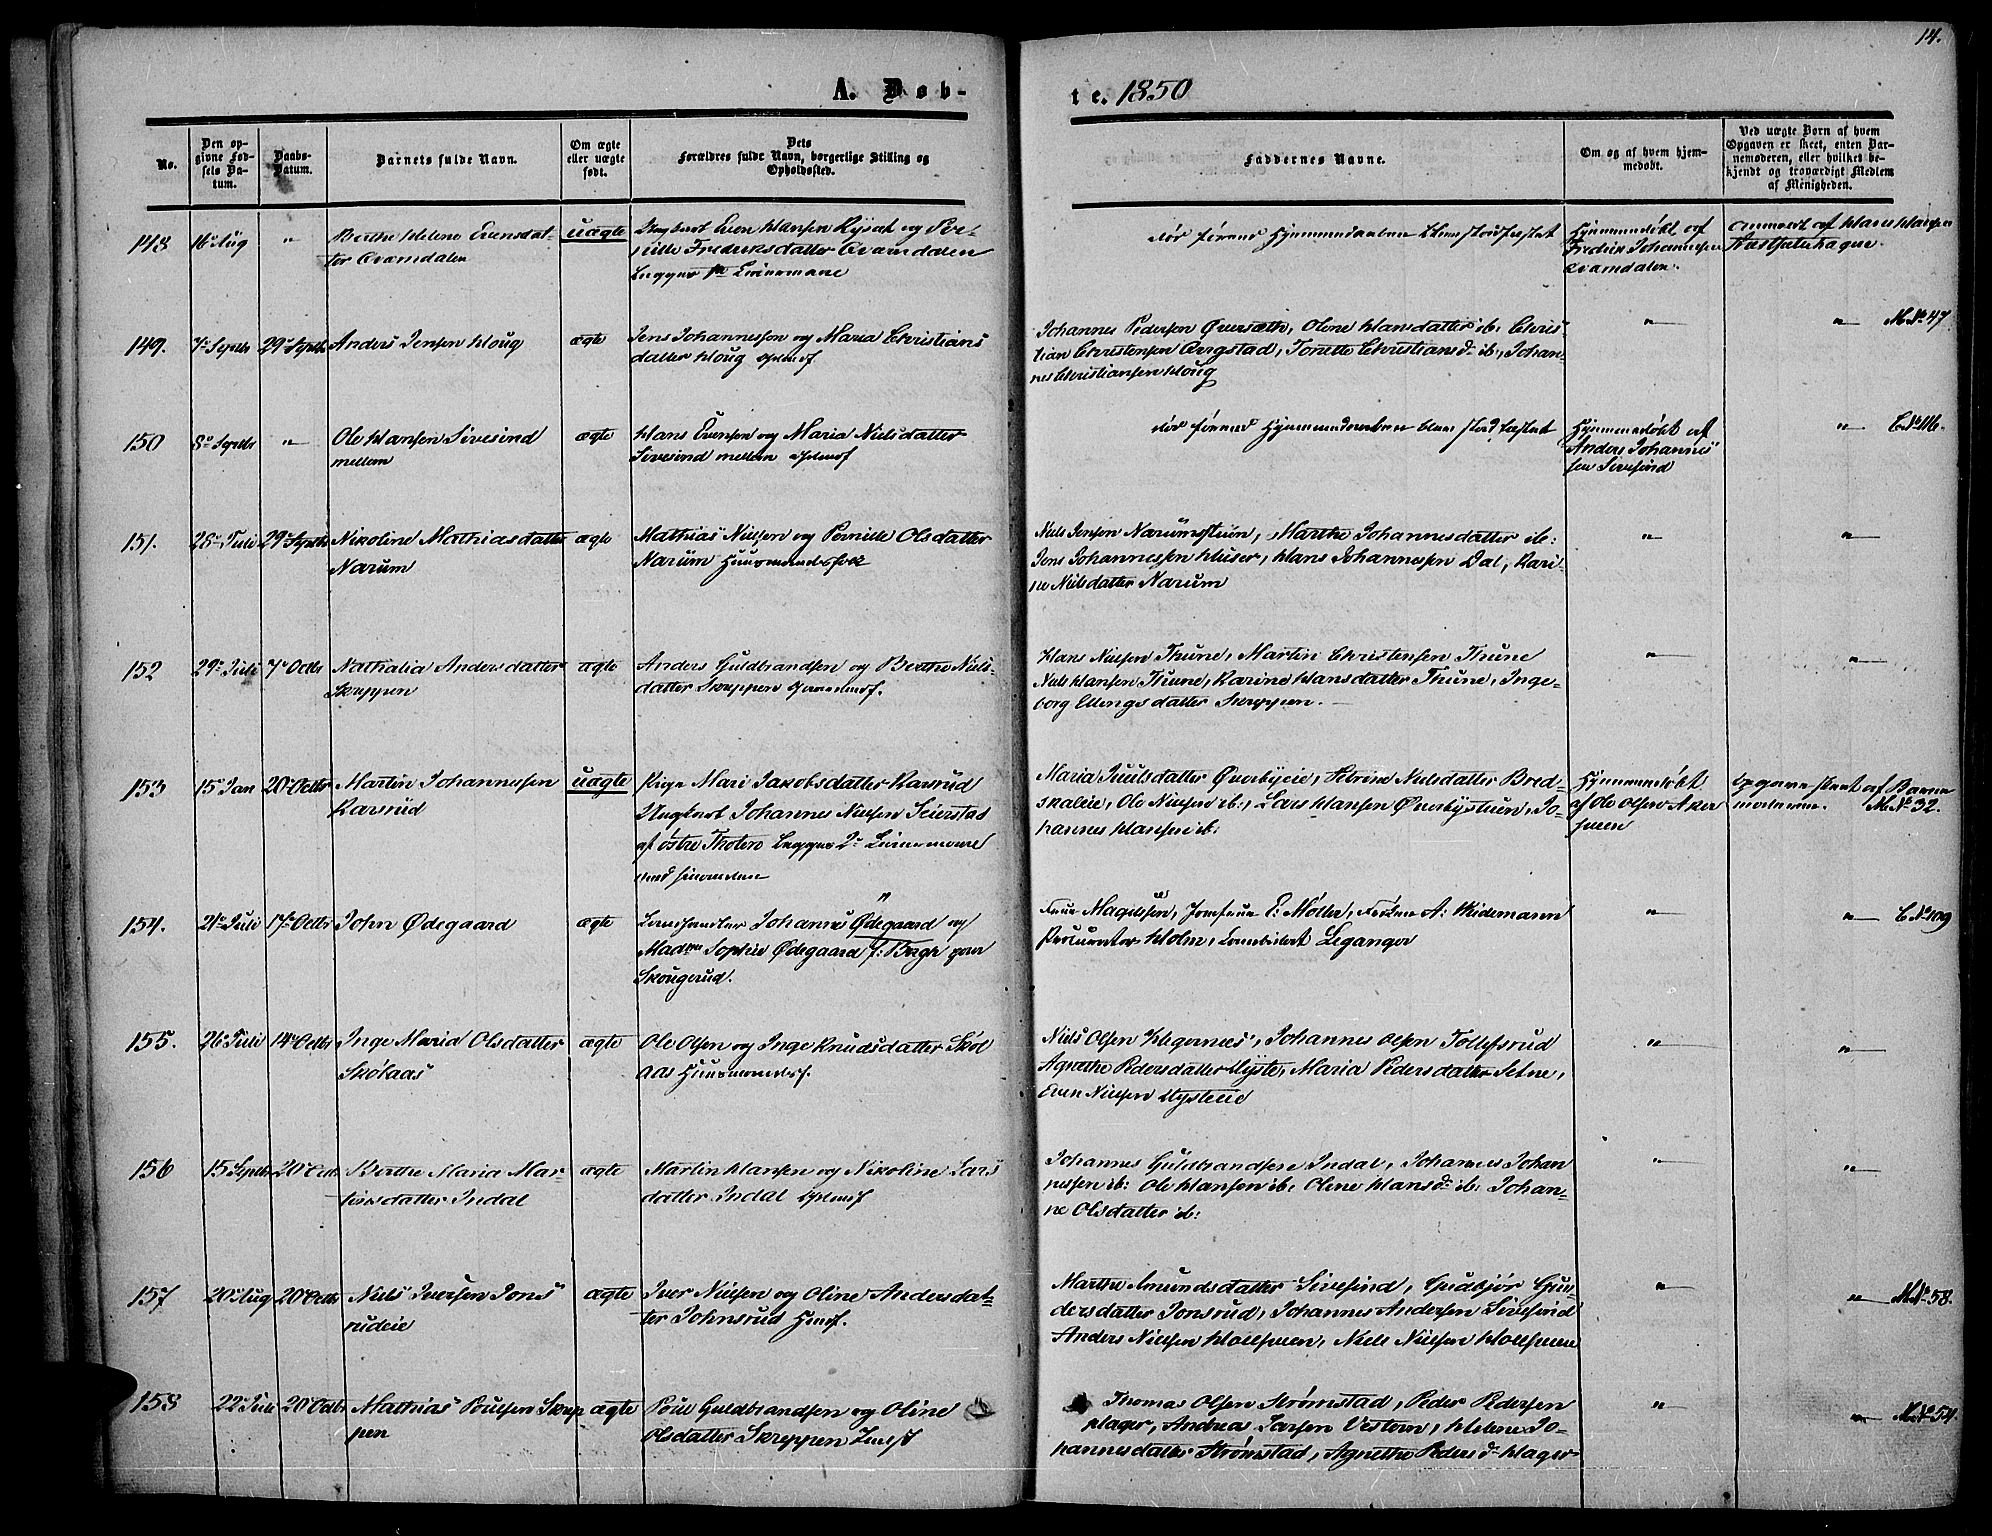 14.
A. Døb-
te. 1850
No.
Den op-
givne Fød-
sels Da-
tum.
Daabs-
Datum.
Barnets fulde Navn.
Om ægte
eller uægte
født.
Dets
Forældres fulde Navn, borgerlige Stilling og
Opholdssted.
Faddernes Navne.
Om og af hvem hjem-
medøbt.
Ved uægte Børn af hvem
Opgaven er skeet, enten Bar-
nemoderen, eller hvilket be-
kjendt og troværdigt Medlem
af Menigheden.
148 16 Aug " Berthe Helene Evensdat-
ter Qvamdalen
uægte
Ungkarl Even Hansen og Per-
nille Fredriksdatter Qvamdalen
Begges 1ste Leiermaal
død førend Hjemmedaaben blev stadfæstet
Hjemmedøbt af
Fredrik Johannesen
Qvamdalen.
anmeldt af Hans Hansen
149. 7de Septbr 29de Septbr Anders Jensen Houg
ægte
Jens Johannesen og Maria Christians
datter Houg
Johannes Pedersen Øversæth, Olene Hansdatter ib: Chris
tian Christensen Ongstad, Tonette Christiansd: ib, Johan-
nes Christiansen Houg
" " M No 47
150 8de Septbr " Ole Hansen Sivesind
mellem
ægte
Hans Evensen og Maria Nielsdatter
Sivesind mellem
død førend Hjemmedaaben blev stadfæstet
Hjemmedøbt af
Anders Johannes
sen Sivesind
" C No 116.
151. 28de Juli 29de Septbr Nikoline Mathiasdatter
Narum
ægte
Mathias Nielsen og Pernille Olsdatter
Narum Huusmandsfolk
Niels Jensen Narumstuen, Marthe Johannesdatter ib:
Jens Johannessen Huser, Hans Johannessen Dal, Kari-
ne Nielsdatter Narum
" "
152 29de Juli 7de Octbr Nathalia Andersdatter
Skreppen
ægte
Anders Guldbrandsen og Berthe Niels-
datter Skreppen
Hans Nielsen Thune, Martin Christensen Thune
Niels Hansen Thune, Karine Hansdatter Thune, Inge-
borg Ellingsdatter Skreppen.
" "
153 15de Jan 20de Octbr Martin Johannesen
Karsrud
uægte
Pige Mari Jakobsdatter Karsrud
Ungkarl Johannes Nielsen Seierstad
af østre Thoten Begges 2de Leiermaal
med hinanden
Maria Juulsdatter Øverbyeie, Nielsdatter Bred-
skaleie, Ole Nielsen ib:, Lars Hansen Øverbystuen, Jo-
hannes Hansen ib:
Hjemmedøbt
af Ole Olsen Aker
huen
Opgaven skeet af Barne
moderen. M No 32.
154. 21de Juli 17de Octbr John Ødegaard
ægte
Johannes Ødegaard og
Madme Sophie Ødegaard f: Bagh
Skougerud.
Frue Magelssen, Jomfrue E: Møller, Frøken A: Wiedemann
Procurator Holm, Leganger
" " C No 109
155. 26de Juli 14de Octbr Inge Maria Olsdatter
Skölaas
ægte
Ole Olsen og Inge Knudsdatter Sköl
aas Huusmandsf.
Niels Olsen Hegernæs, Johannes Olsen Tollefsrud
Agnethe Pedersdatter Hyste, Maria Pedersdatter Setne,
Even Nielsen Hysteeie
" "
156 15 Septbr 20de Octbr Berthe Maria Mar-
tinsdatter Indal
ægte
Martin Hansen og Nikoline Lars
datter Indal
Johannes Guldbrandsen Indal, Johannes Johan
nessen ib: Ole Hansen ib: Olene Hansd: ib: Johan-
ne Olsdatter ib:
" "
157 20 Aug 20de Octbr Niels Iversen Jons
rudeie
ægte
Iver Nielsen og Oline Andersdat-
ter Johnsrud Huusf.
Marthe Amundsdatter Sivesind, Gudbjør Gun-
dersdatter Jonsrud, Johannes Andersen Sivesind
Anders Nielsen, Niels Nielsen
" " M No 58.
158 22 Juli 20 Octbr Mathias Poulsen Skrep
pen
ægte
Poul Guldbrandsen og Oline
Olsdatter Skreppen
Thomas Olsen Strømstad, Peder Pedersen
Hager, Andreas Larsen Vestern, Helene Jo-
hannesdatter Strømstad, Agnethe Pedersd: Hager
" " M No 54.